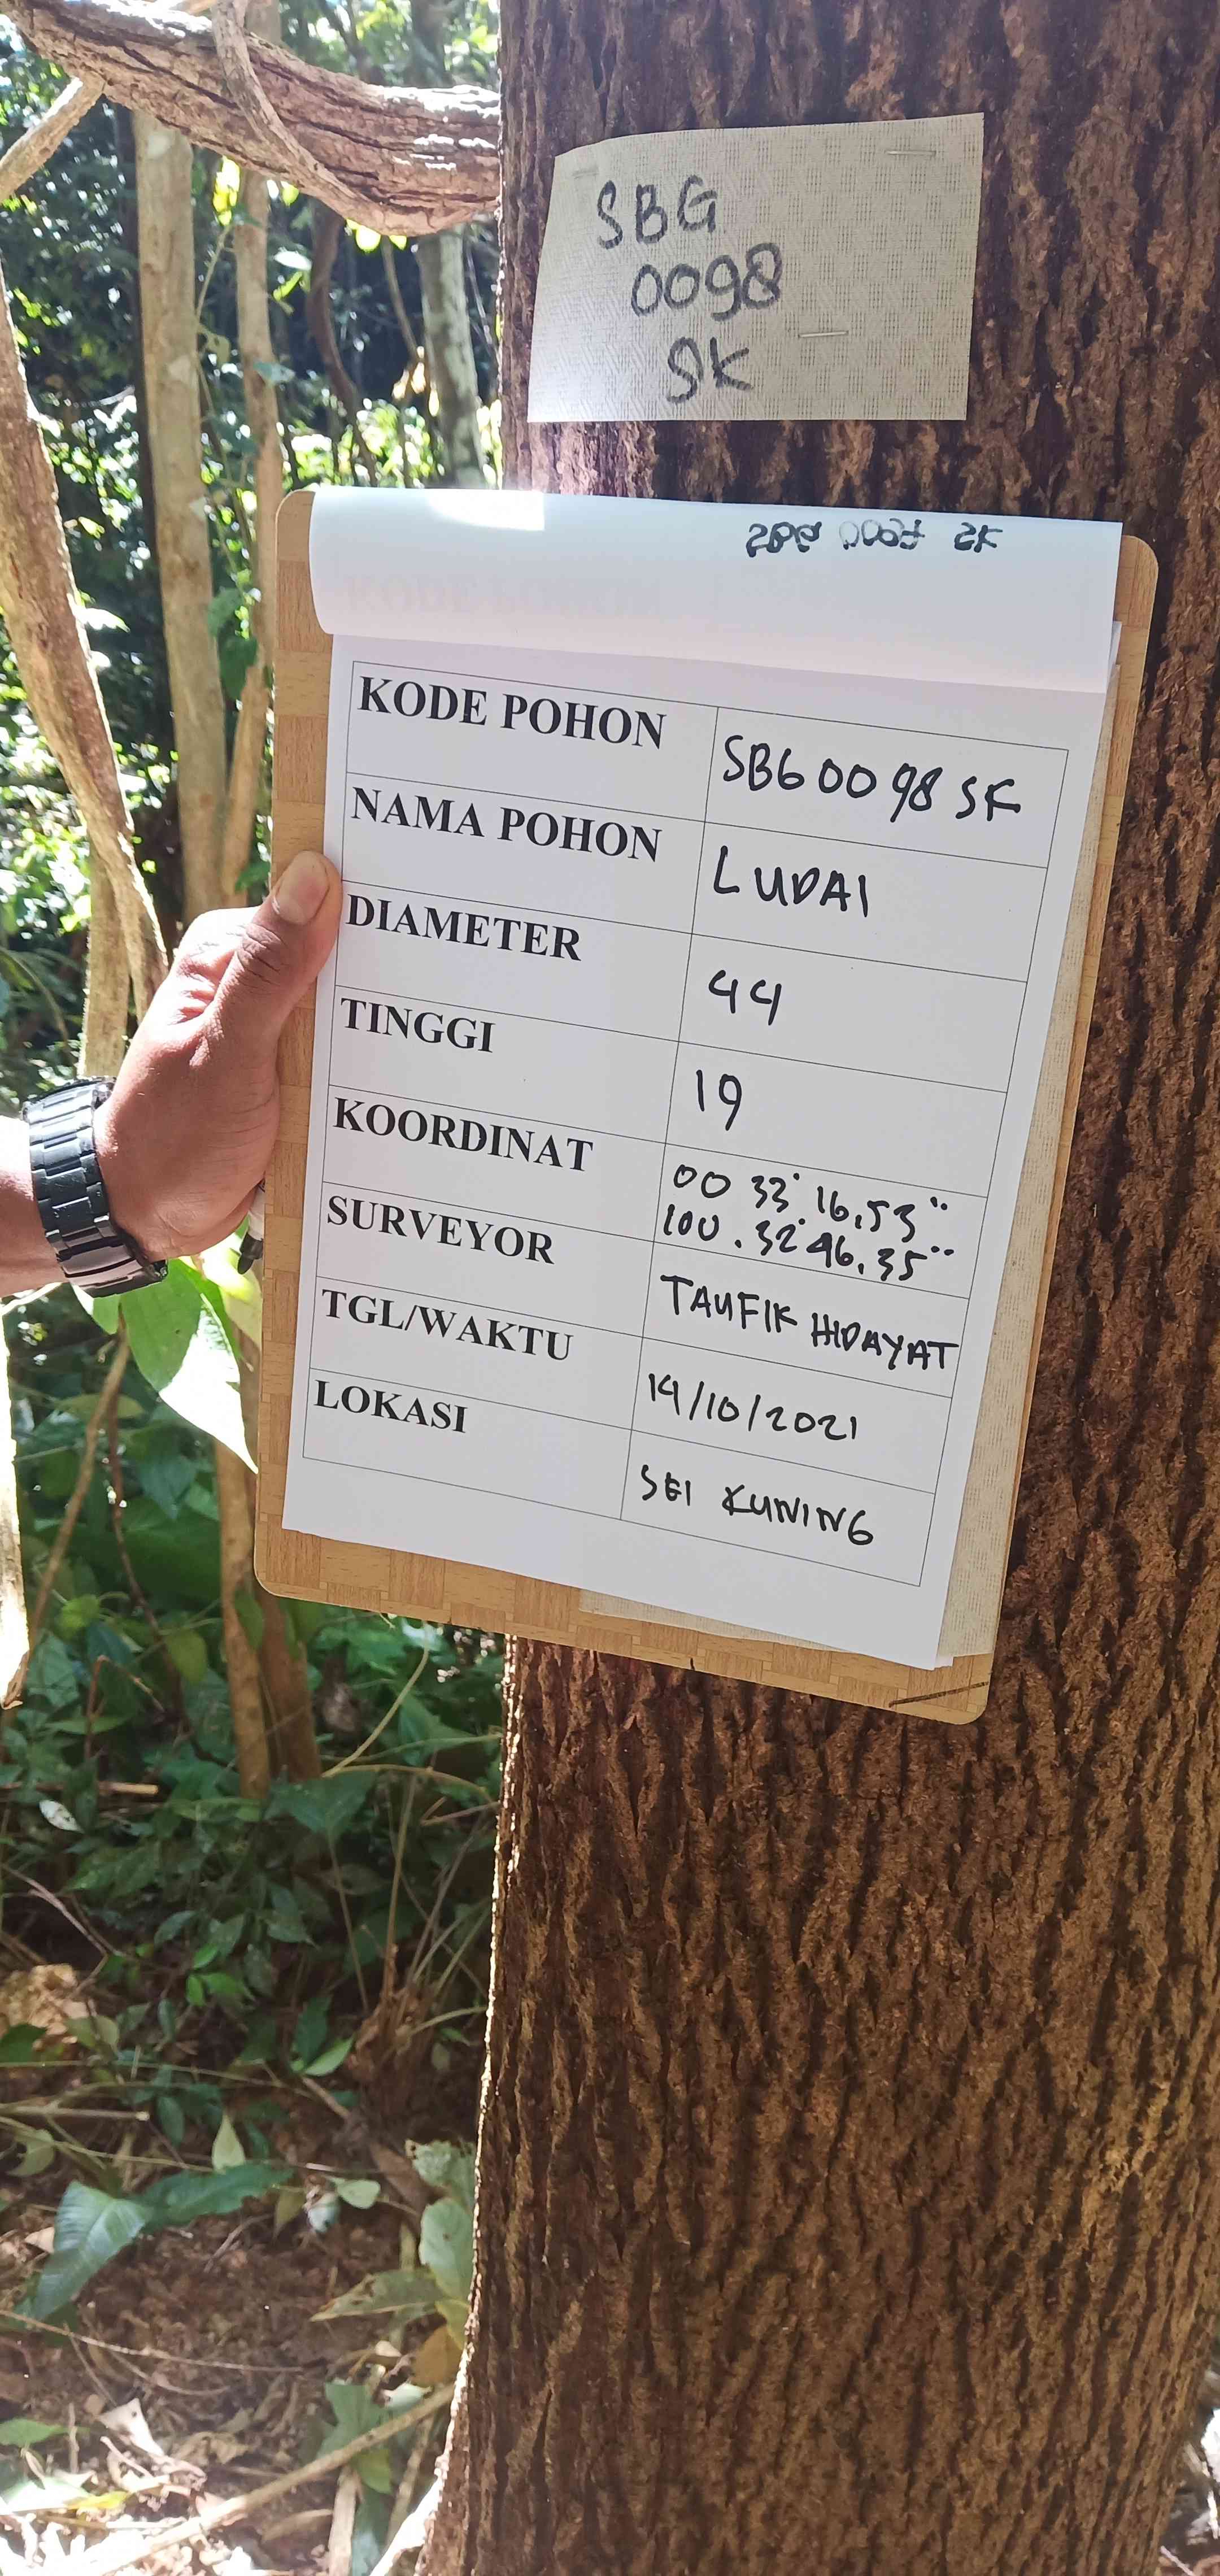 SBG
0098
SK
KODE POHON SBG 0098 SK
NAMA POHON LUDAI
DIAMETER 44
TINGGI 19
KOORDINAT 00 33' 16,53"
100. 32' 46.35"
SURVEYOR TAUFIK HIDAYAT
TGL/WAKTU 14/10/2021
LOKASI SEI KUNING